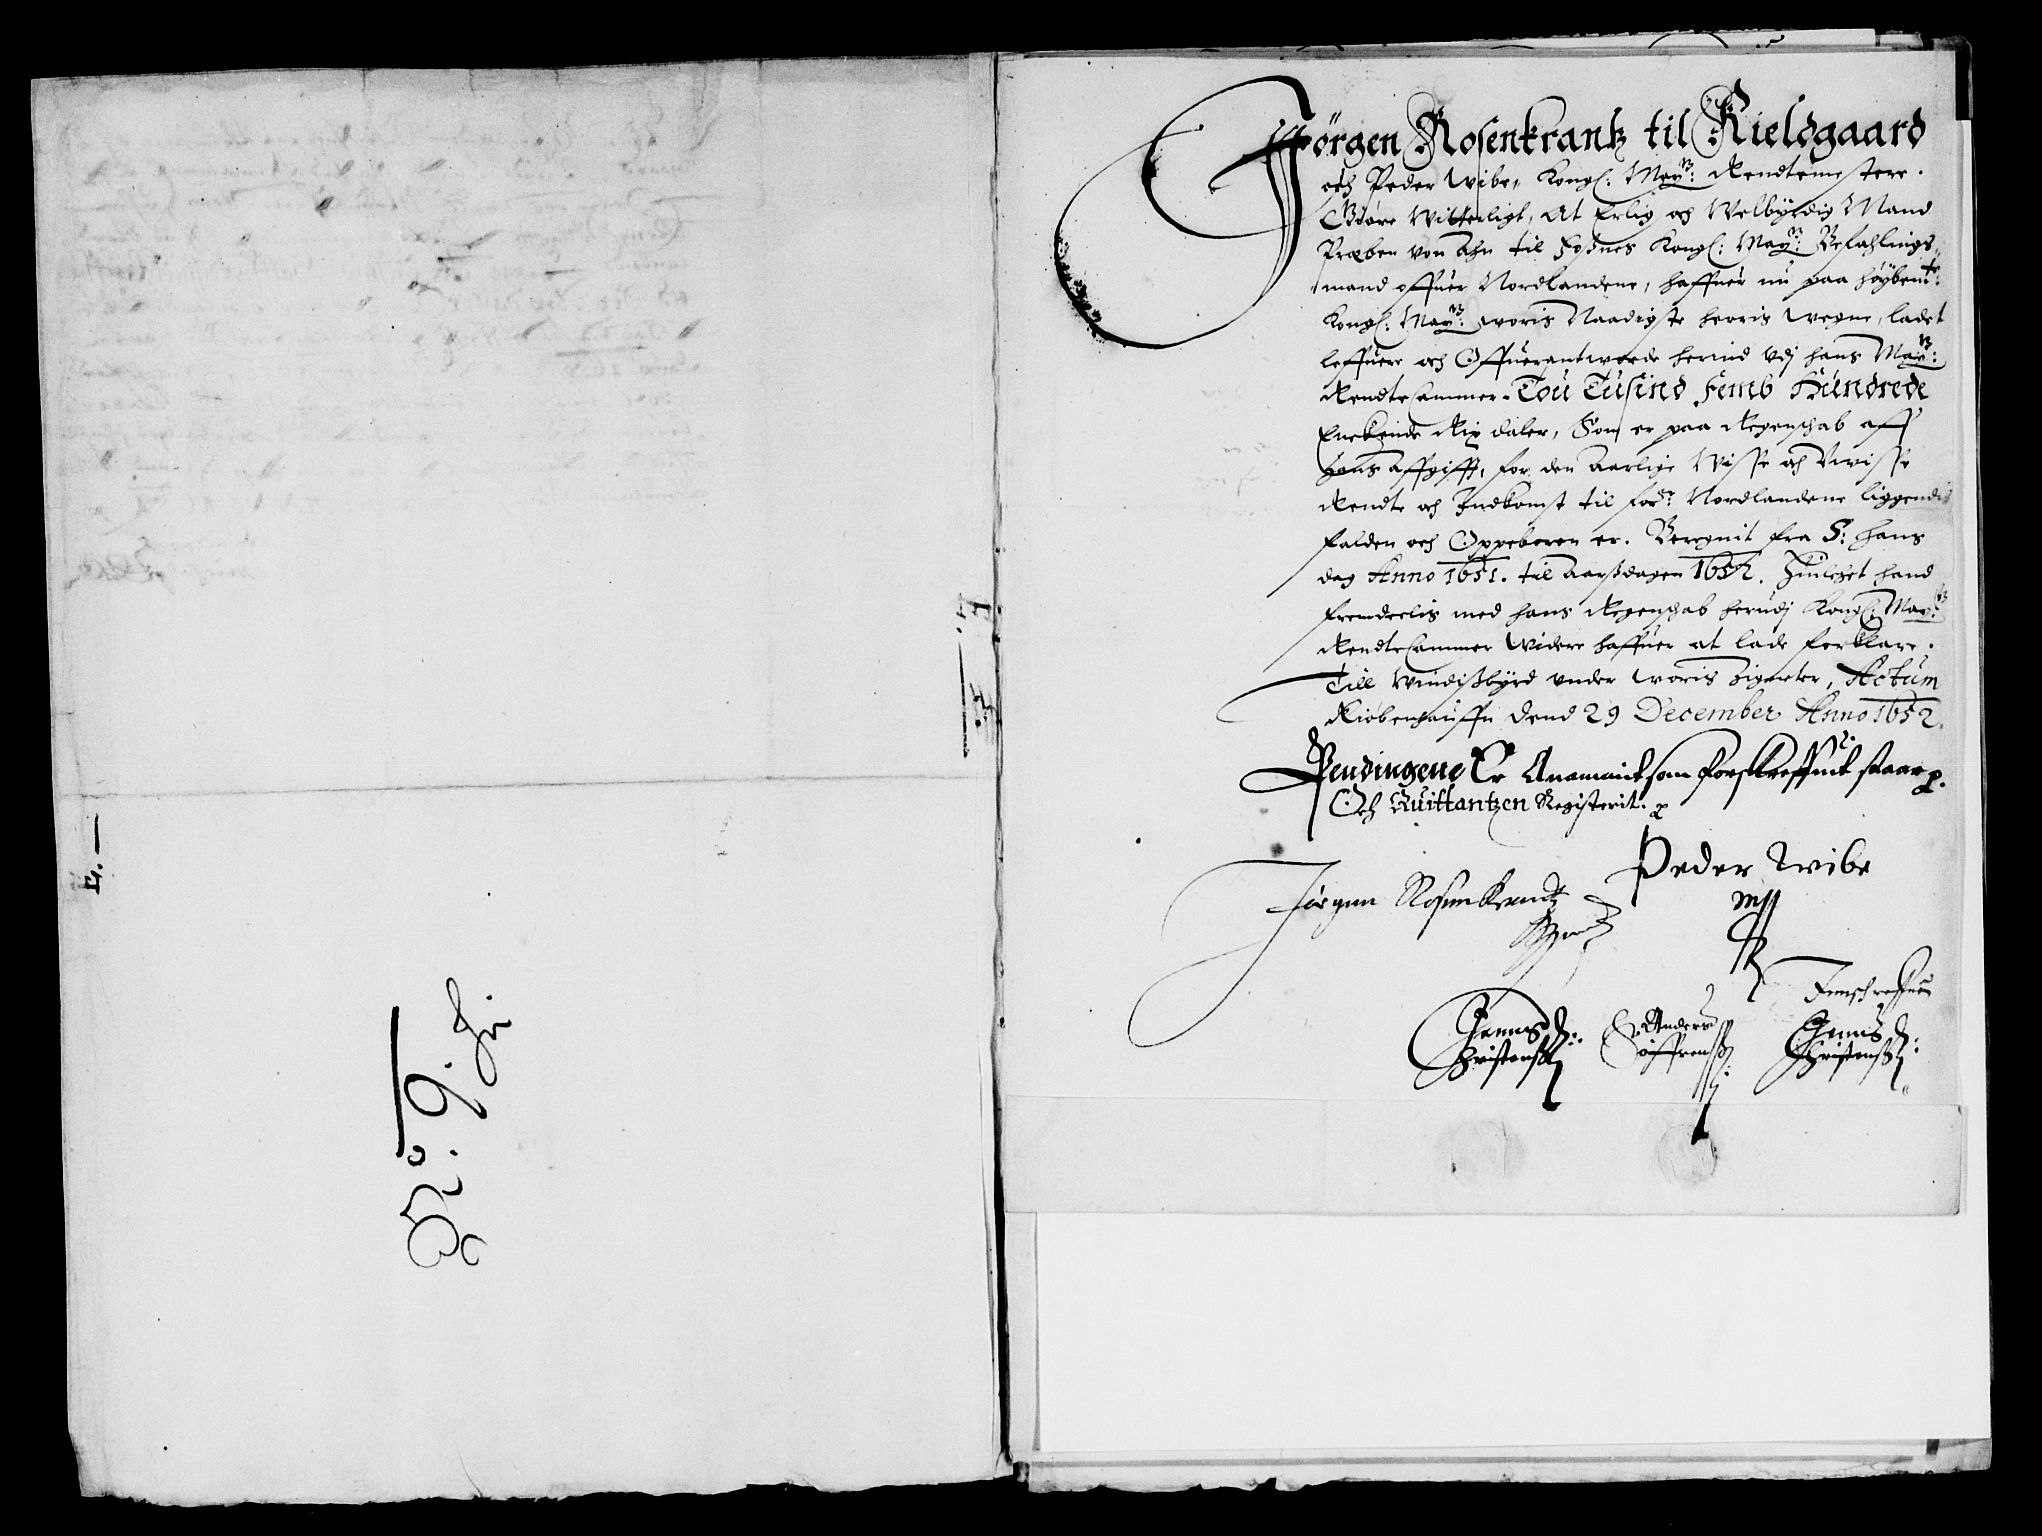 Nº. 9.
Jørgen Rosenkrantz til Kieldgaard
och Peder Wibe, Kongl: Maytz: Rendtemestere.
Giøre Witterligt, At Erlig och Welbyrdig Mand
Preben von Ahn til Foßnes Kongl: Maytz: Befahlings-
mand offuer Nordlandene, haffuer nu paa høybemte:
Kongl: Maytz: woris Naadigste herris wegne, ladet
leffuere och Offuerantworde herind vdj hans Maytz:
RendteCammer. Tou Tusind Femb Hundrede
Enckende Rix daler, Som er paa Regenschab aff
hans affgifft, for den aarlige Wisse och Vwisse
Rendte och Indkomst til forne: Nordlandene liggendis
falden och Oppeboren er. Beregnit fra S: Hans
dag Anno 1651. til Aarßdagen 1652. Huilchet hand
fremdeelis med hans Regenschab herudj Kongl: Maytz:
RendteCammer Widere haffuer at lade forklare.
Till Windißbyrd vnder woris Zigneter, Actum
Kiøbenhauffn Dend 29 December Anno 1652.
Pendingene Er Anammit som forskreffuit staar
Och Quittantzen Registerit.
Peder Wibe
Jørgen Rosenkrantz
mp
Jenns
Christenß
Anders
Søffrenß
Jenns
Christenß